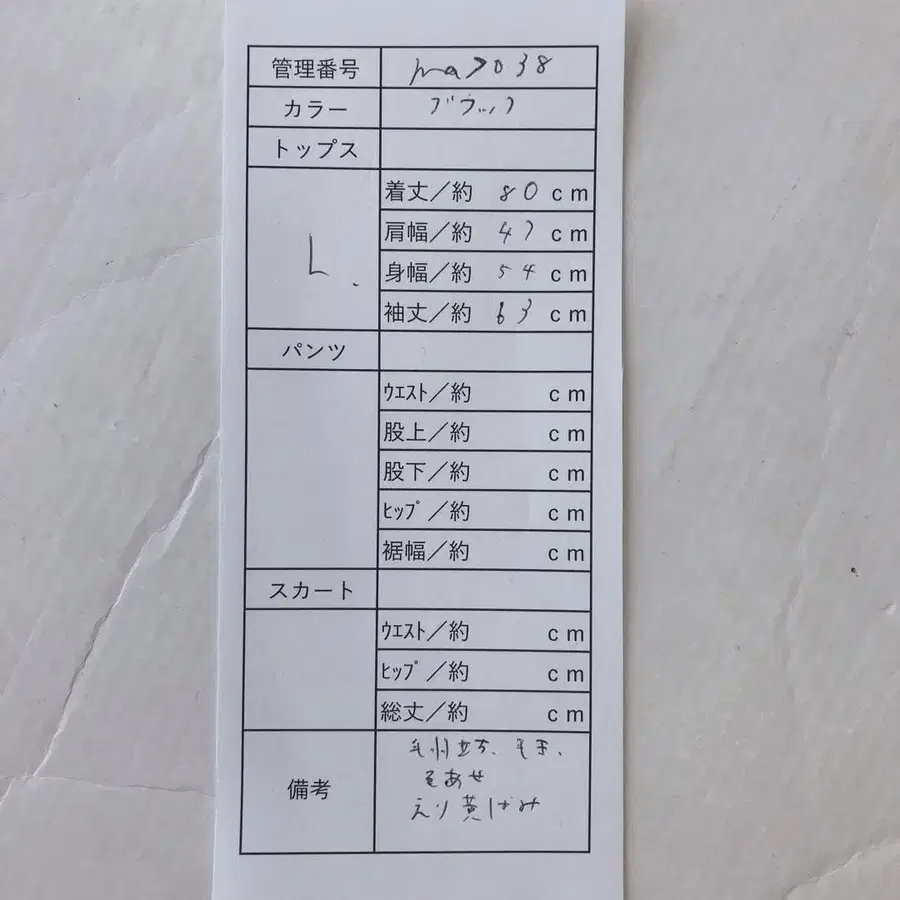 管理番号 ma7038
カラー ブラック
トップス
L.
着丈／約 80 cm
肩幅／約 47 cm
身幅／約 54 cm
袖丈／約 63 cm
パンツ
ｳｴｽﾄ／約 cm
股上／約 cm
股下／約 cm
ﾋｯﾌﾟ／約 cm
裾幅／約 cm
スカート
ｳｴｽﾄ／約 cm
ﾋｯﾌﾟ／約 cm
総丈／約 cm
備考
毛羽立ち、毛玉、
色あせ
えり黄ばみ